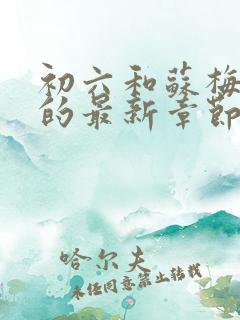 初六和蘇梅
的最新章節
哈尔夫
未经同意禁止转载